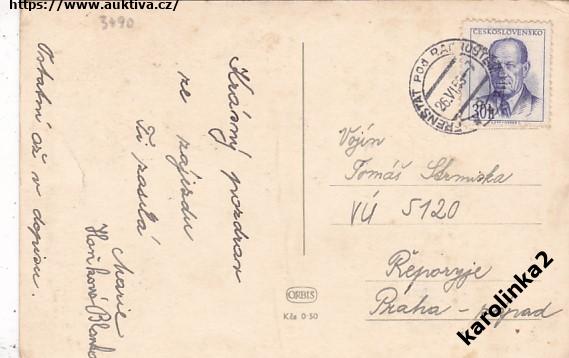 https://www.auktiva.cz/
3490
Krásný pozdrav
ze zájezdu
Ti zasílá
Marie
Blanka
Ostatní až v dopisu.
ČESKOSLOVENSKO
30h
FRENŠTÁT POD RADHOŠTĚM
26.VI.53
Vojín
Tomáš
VÚ 5120
Řeporyje
Praha - západ
ORBIS
Kčs 0·50
karolinka2